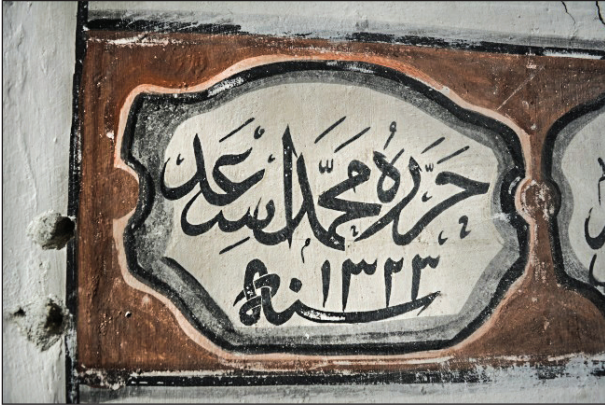 حرره محمد اسعد
سنه ١٣٢٣